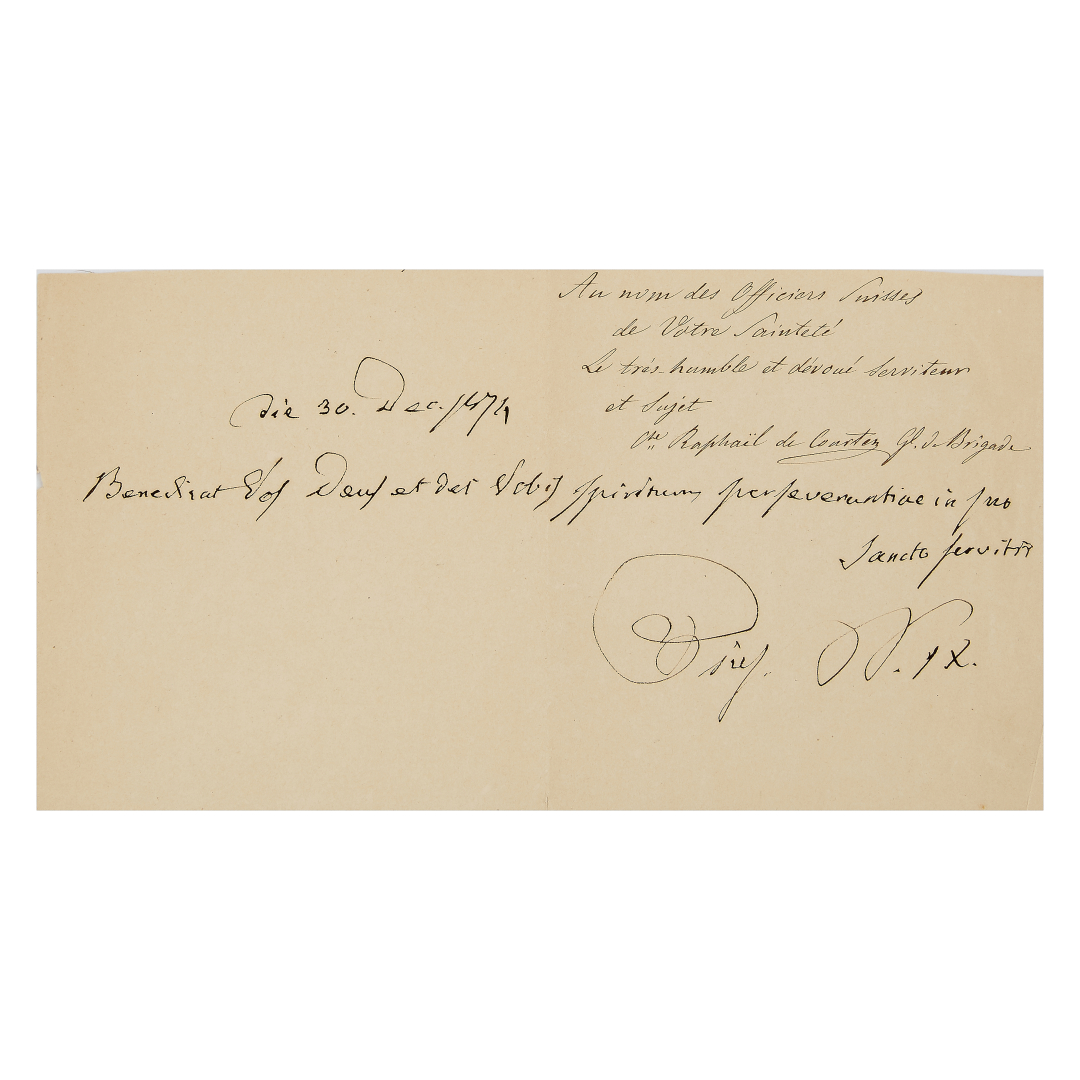 Au nom des Officiers Suisses
de Votre Sainteté
Le très-humble et dévoué Serviteur
et Sujet
Cte Raphaël de Courten Gl. de Brigade
Die 30. Dec. 1874
Benedicat Vos Deus et det Vobis spiritum perseverantiae in suo
Sancto servitio
Pius P. IX.